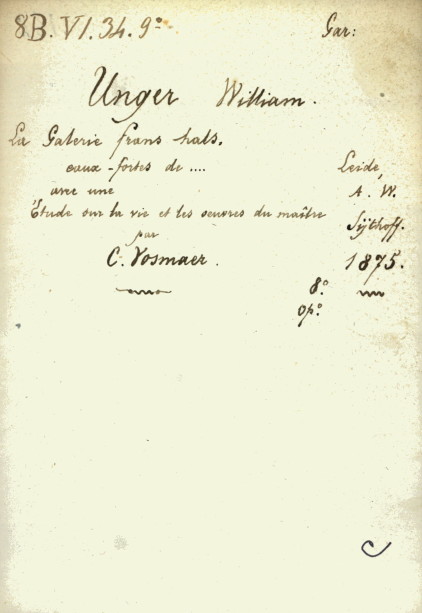 8B. VI. 34. 9º
Gar:
Unger William.
La Galerie frans hals.
eaux-fortes de ....
avec une
Étude sur la vie et les oeuvres du maître
par
C. Vosmaer.
Leide,
A. W.
Sijthoff.
1875.
8.º
op.º